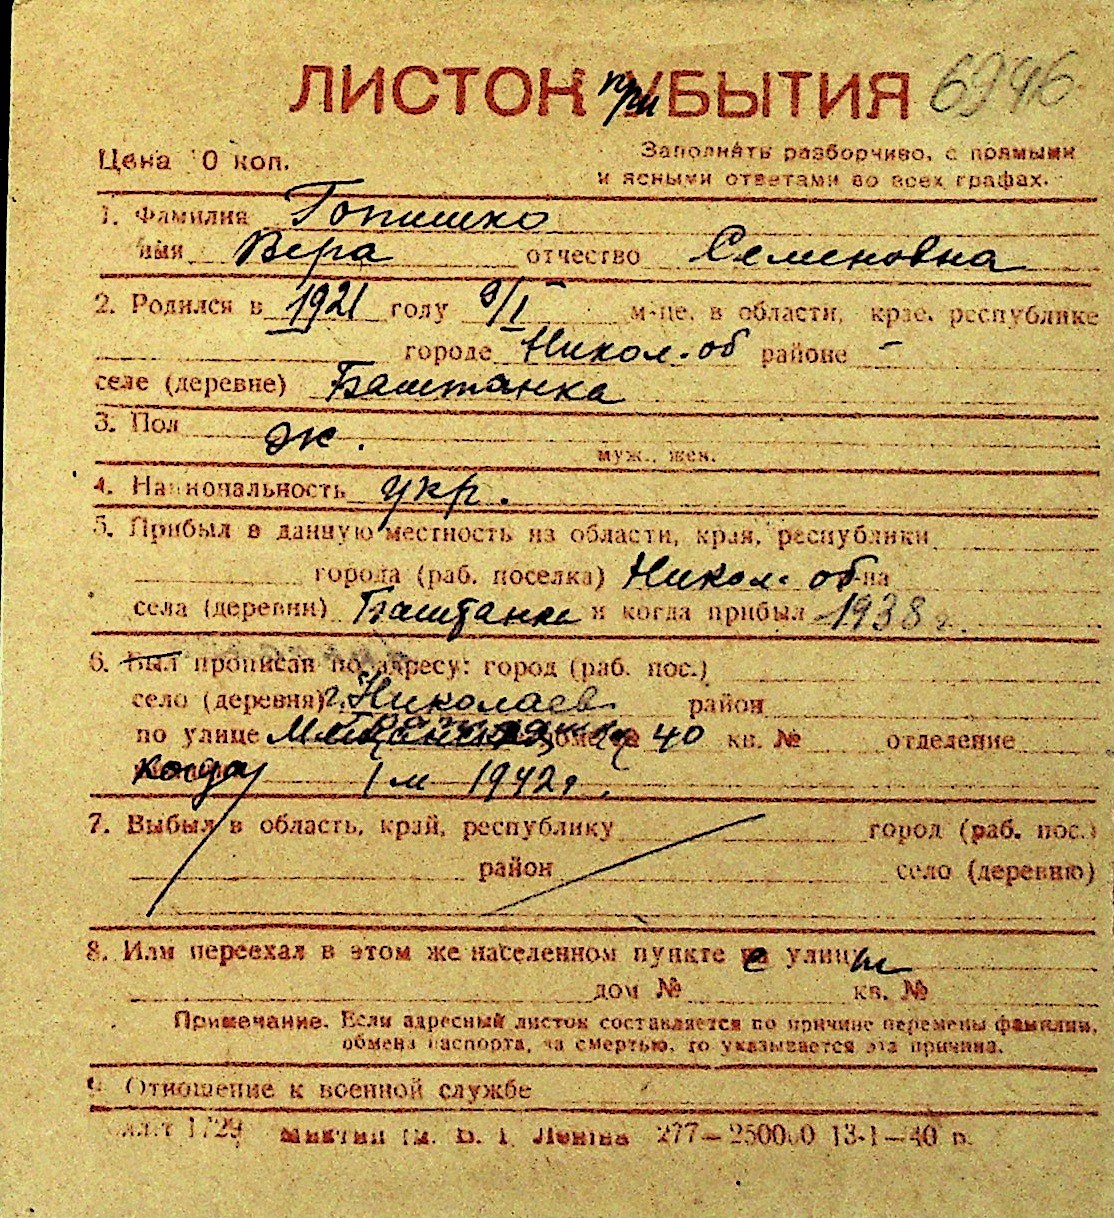 ЛИСТОК приБЫТИЯ 6946
Цена 10 коп.
Заполнять разборчиво, с прямыми
и ясными ответами во всех графах.
1. Фамилия Гопишко
имя Вера отчество Семеновна
2. Родился в 1921 году 9/I м-це, в области, крае, республике
городе Никол. об районе -
селе (деревне) Баштанка
3. Пол ж.
муж., жен.
4. Национальность укр.
5. Прибыл в данную местность из области, края, республики
города (раб. поселка) Никол. об-на
села (деревни) Баштанка и когда прибыл 1938 г.
6. Был прописан по адресу: город (раб. пос.)
село (деревня) г. Николаев район
по улице 40 кв. № отделение
когда 1 м 1942 г.
7. Выбыл в область, край, республику город (раб. пос.)
район село (деревню)
8. Или переехал в этом же населенном пункте с улицы
дом № кв. №
Примечание. Если адресный листок составляется по причине перемены фамилии,
обмена паспорта, за смертью, то указывается эта причина.
9. Отношение к военной службе
1729 277—250000 13-1—40 р.